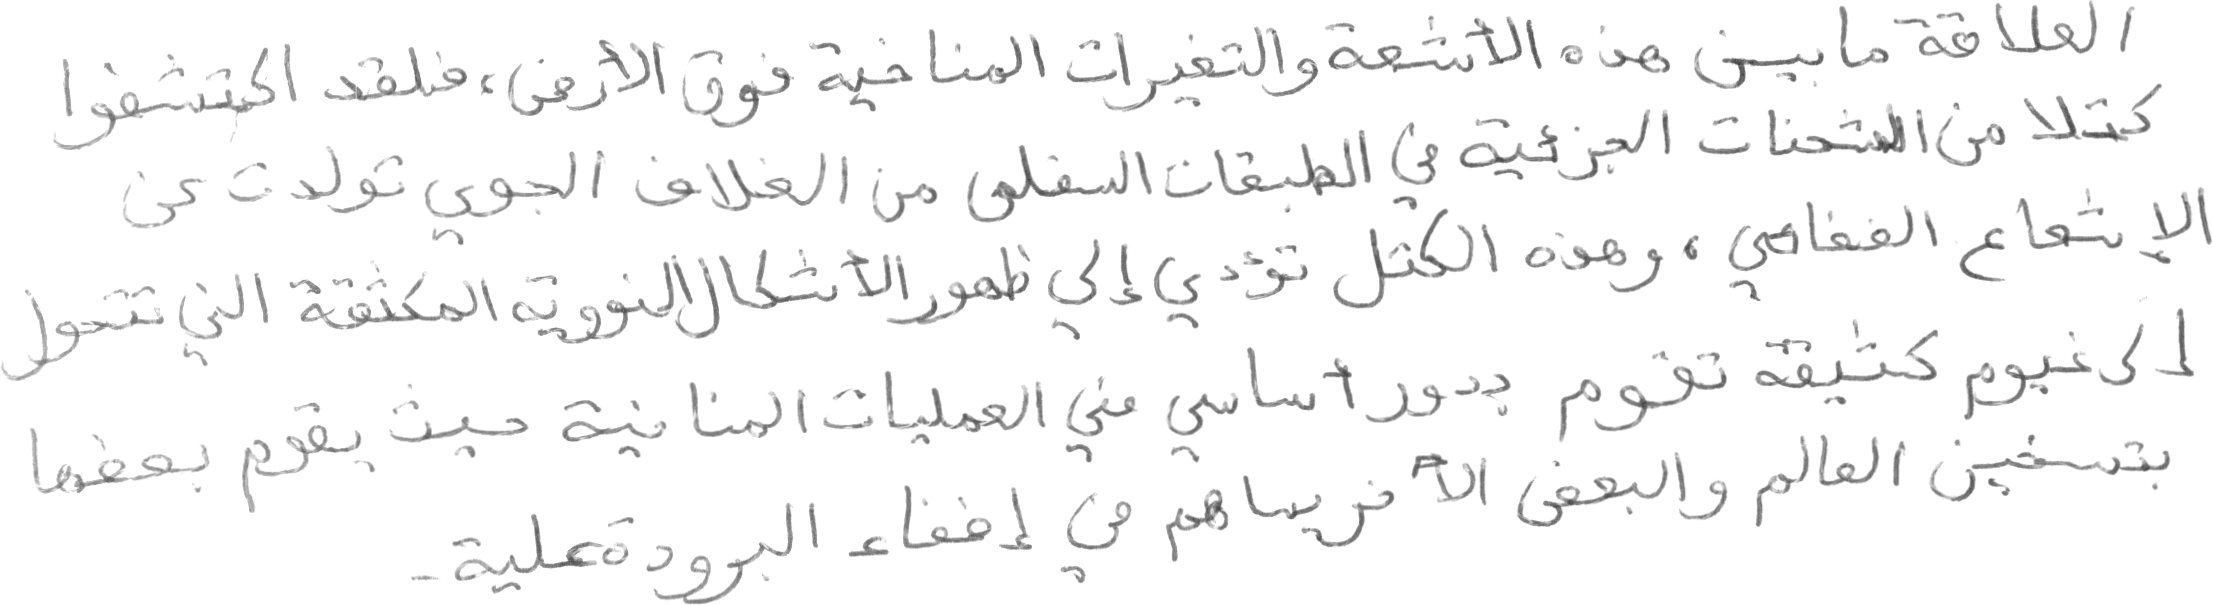 العلاقة ما بين هذه الأشعة والتغيرات المناخية فوق الأرض، فلقد اكتشفوا
كتلا من الشحنات الجزئية في الطبقات السفلى من الغلاف الجوي تولدت عن
الإشعاع الفضائي، وهذه الكتل تؤدي إلي ظهور الأشكال النووية المكثفة التي تتحول
إلى غيوم كثيفة تقوم بدور أساسي في العمليات المناخية حيث يقوم بعضها
بتسخين العالم والبعض الأخر يساهم في إضفاء البرودة علية.